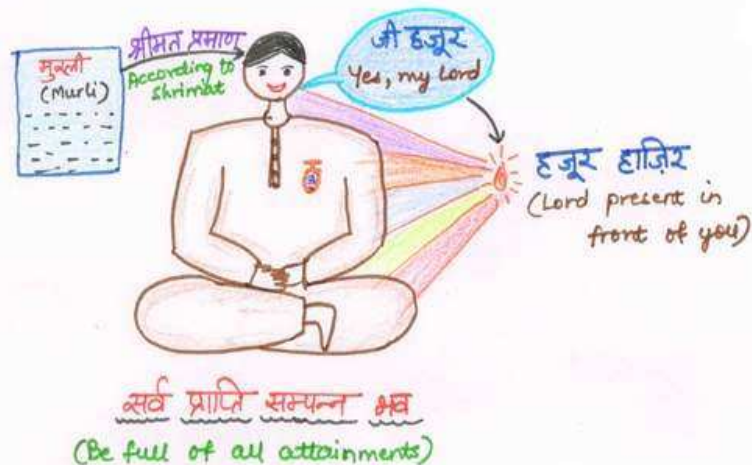 मुरली
(Murli)
श्रीमत प्रमाण
According to
shrimat
जी हजूर
Yes, my Lord
हजूर हाज़िर
(Lord present in
front of you)
सर्व प्राप्ति सम्पन्न भव
(Be full of all attainments)